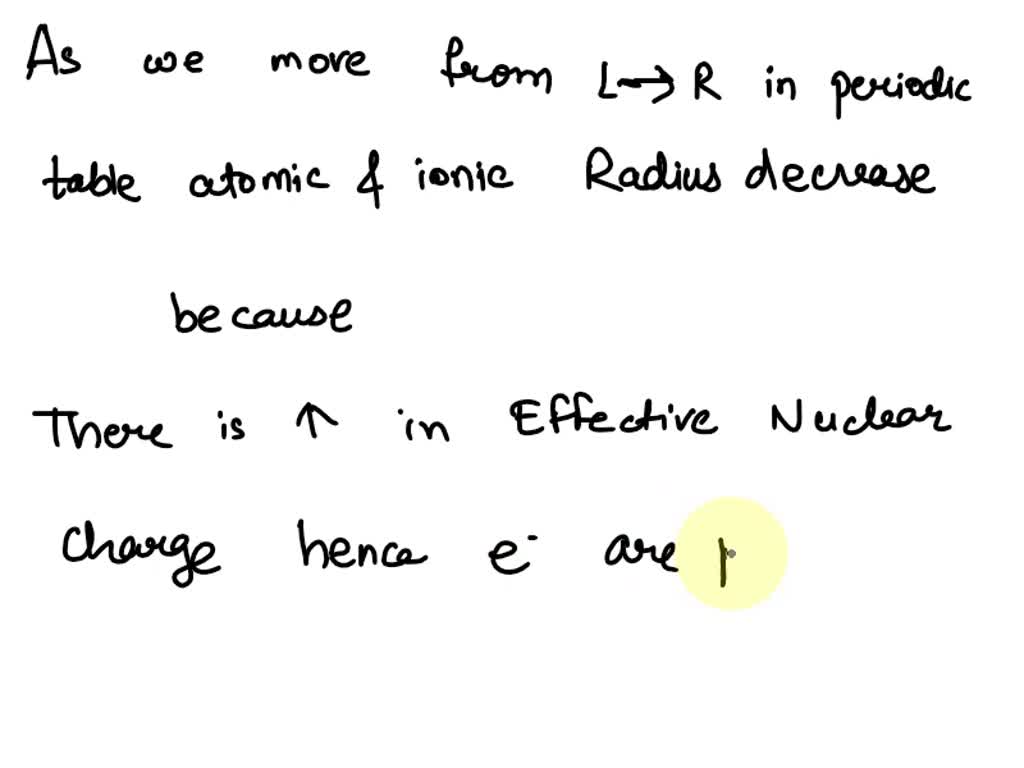 As we more from L→R in periodic
table atomic & ionic Radius decrease
because
There is ↑ in Effective Nuclear
charge hence e⁻ are p